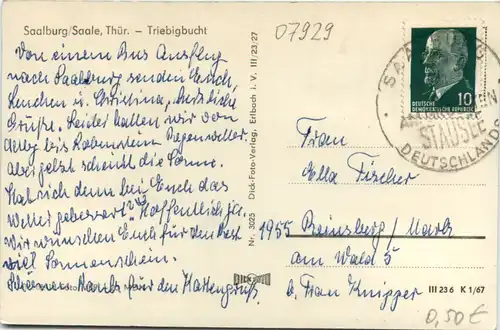 Saalburg/Saale, Thür. – Triebigbucht
07929
Von einem Bus Ausflug
nach Saalburg senden Euch,
Lenchen u. Christina, herzliche
Grüße. Leider hatten wir von
bis Regenwetter
aber jetzt scheint die Sonne.
Hat sich denn bei Euch das
Wetter gebessert? Hoffentlich ja.
Wir wünschen Euch für den Rest
viel Sonnenschein.
Schönen Dank für den Kartengruß.
Nr. 3025 Dick-Foto-Verlag, Erlbach i. V. III/23/27
DICK FOTO
10
DEUTSCHE
DEMOKRATISCHE REPUBLIK
STAUSEE
DEUTSCHLANDS
Frau
Ella Fischer
1955 Rheinsberg/Mark
am Wald 5
b. Frau Knipper
III 23 6 K 1/67
0,50 €